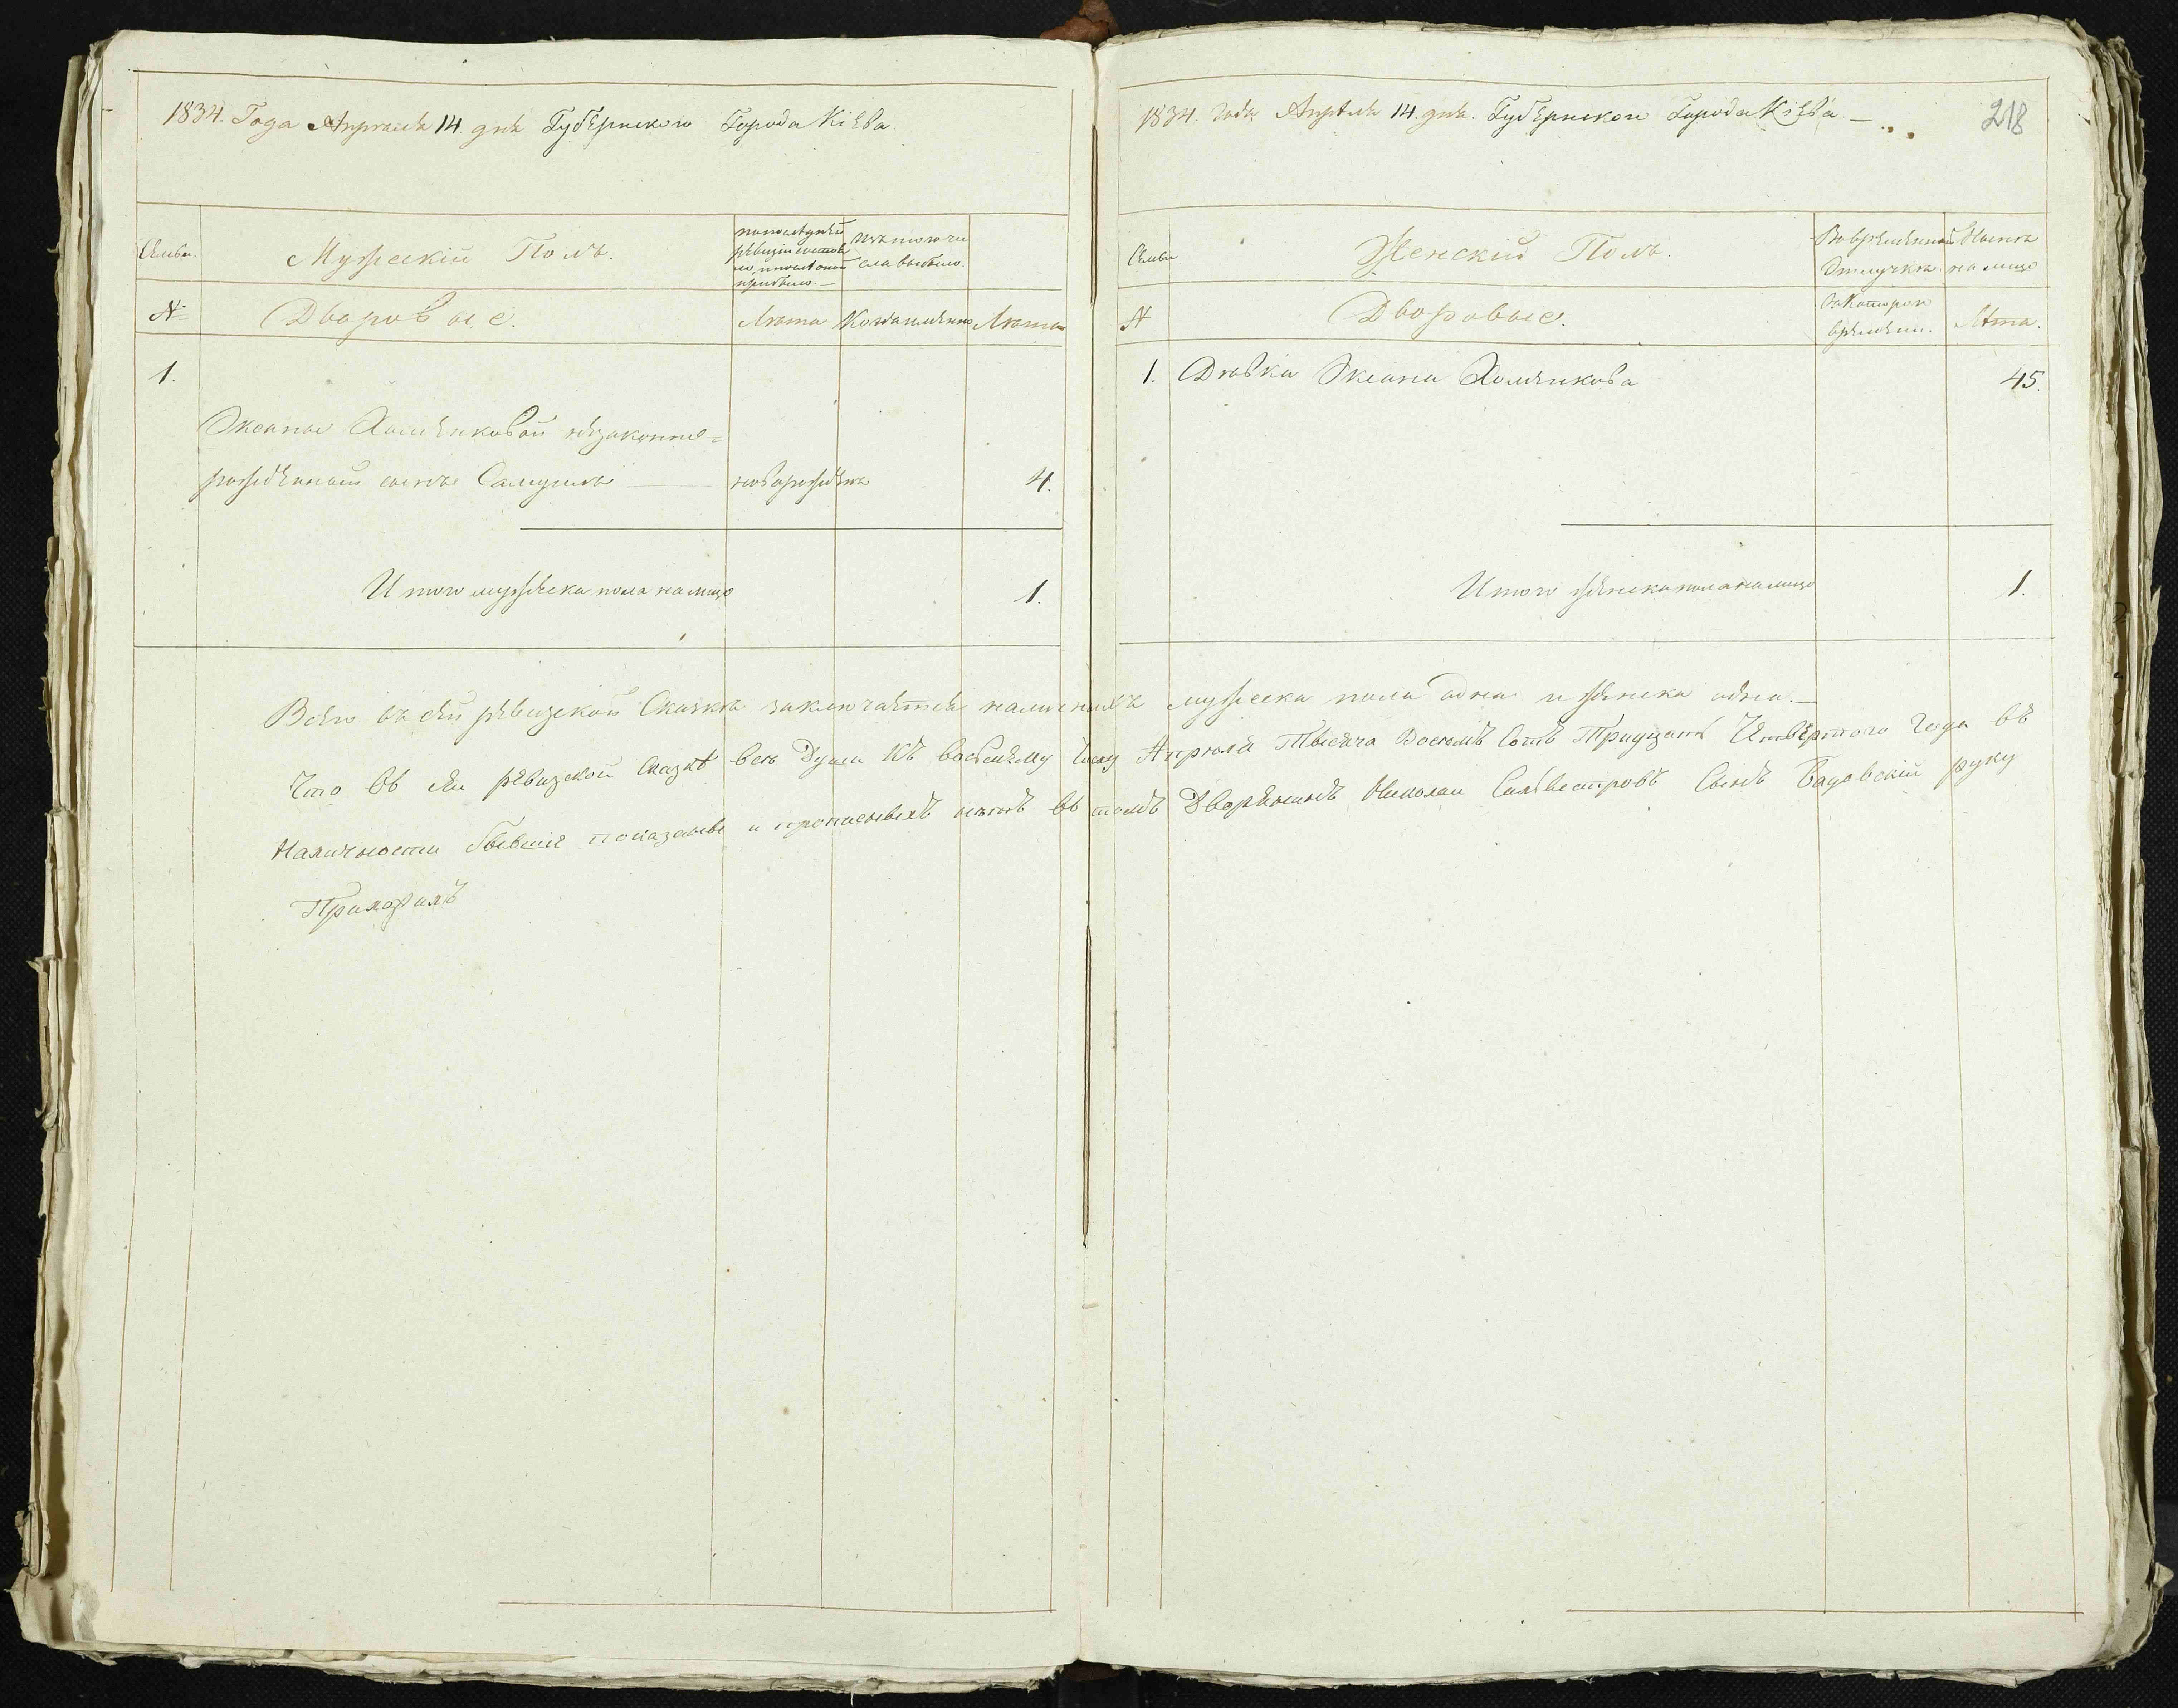 1834. Года Апрѣля 14 дня Губернского Города Кіева.
Семьи.
Мужескій Полъ.
По последней ревизіи состояло и после оной прибыло.—
Изъ того числа выбыло.
№
Дворовые.
Лѣта
Когда именно
Лѣта
1.
Оксаны Хоменковой незаконно=
рожденный сынъ Самуилъ —
новорожденъ
4.
Итого мужеска пола на лицо
1.
1834. года Апрѣля 14. дня. Губернского Города Кіева.—
218
Семьи
Женскій Полъ.
Во временной Отлучкѣ.
Нынѣ на лицо
№
Дворовые.
Съ Которого времени.
Лѣта.
1.
Дѣвка Оксана Хоменкова
45.
Итого женска пола на лицо
1.
Всего въ сей ревизской Сказкѣ заключается наличныхъ мужеска пола одна и женска одна.—
Что въ сей ревизской Сказкѣ все Души къ восьмому числу Апрѣля Тысяча Восемъ Сотъ Тридцать Четвертого Года въ
Наличности бывшіе показаны и прописныхъ нѣтъ въ томъ Дворянинъ Николай Силвестровъ Сынъ руку
Приложилъ